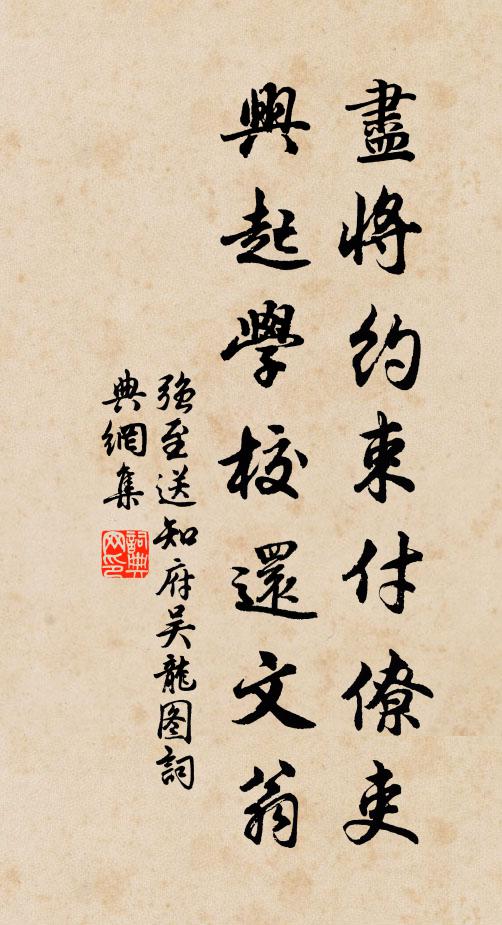 盡將約束付僚吏
興起學校還文翁
强至送知府吴龍图詞
典網集
詞典
网印